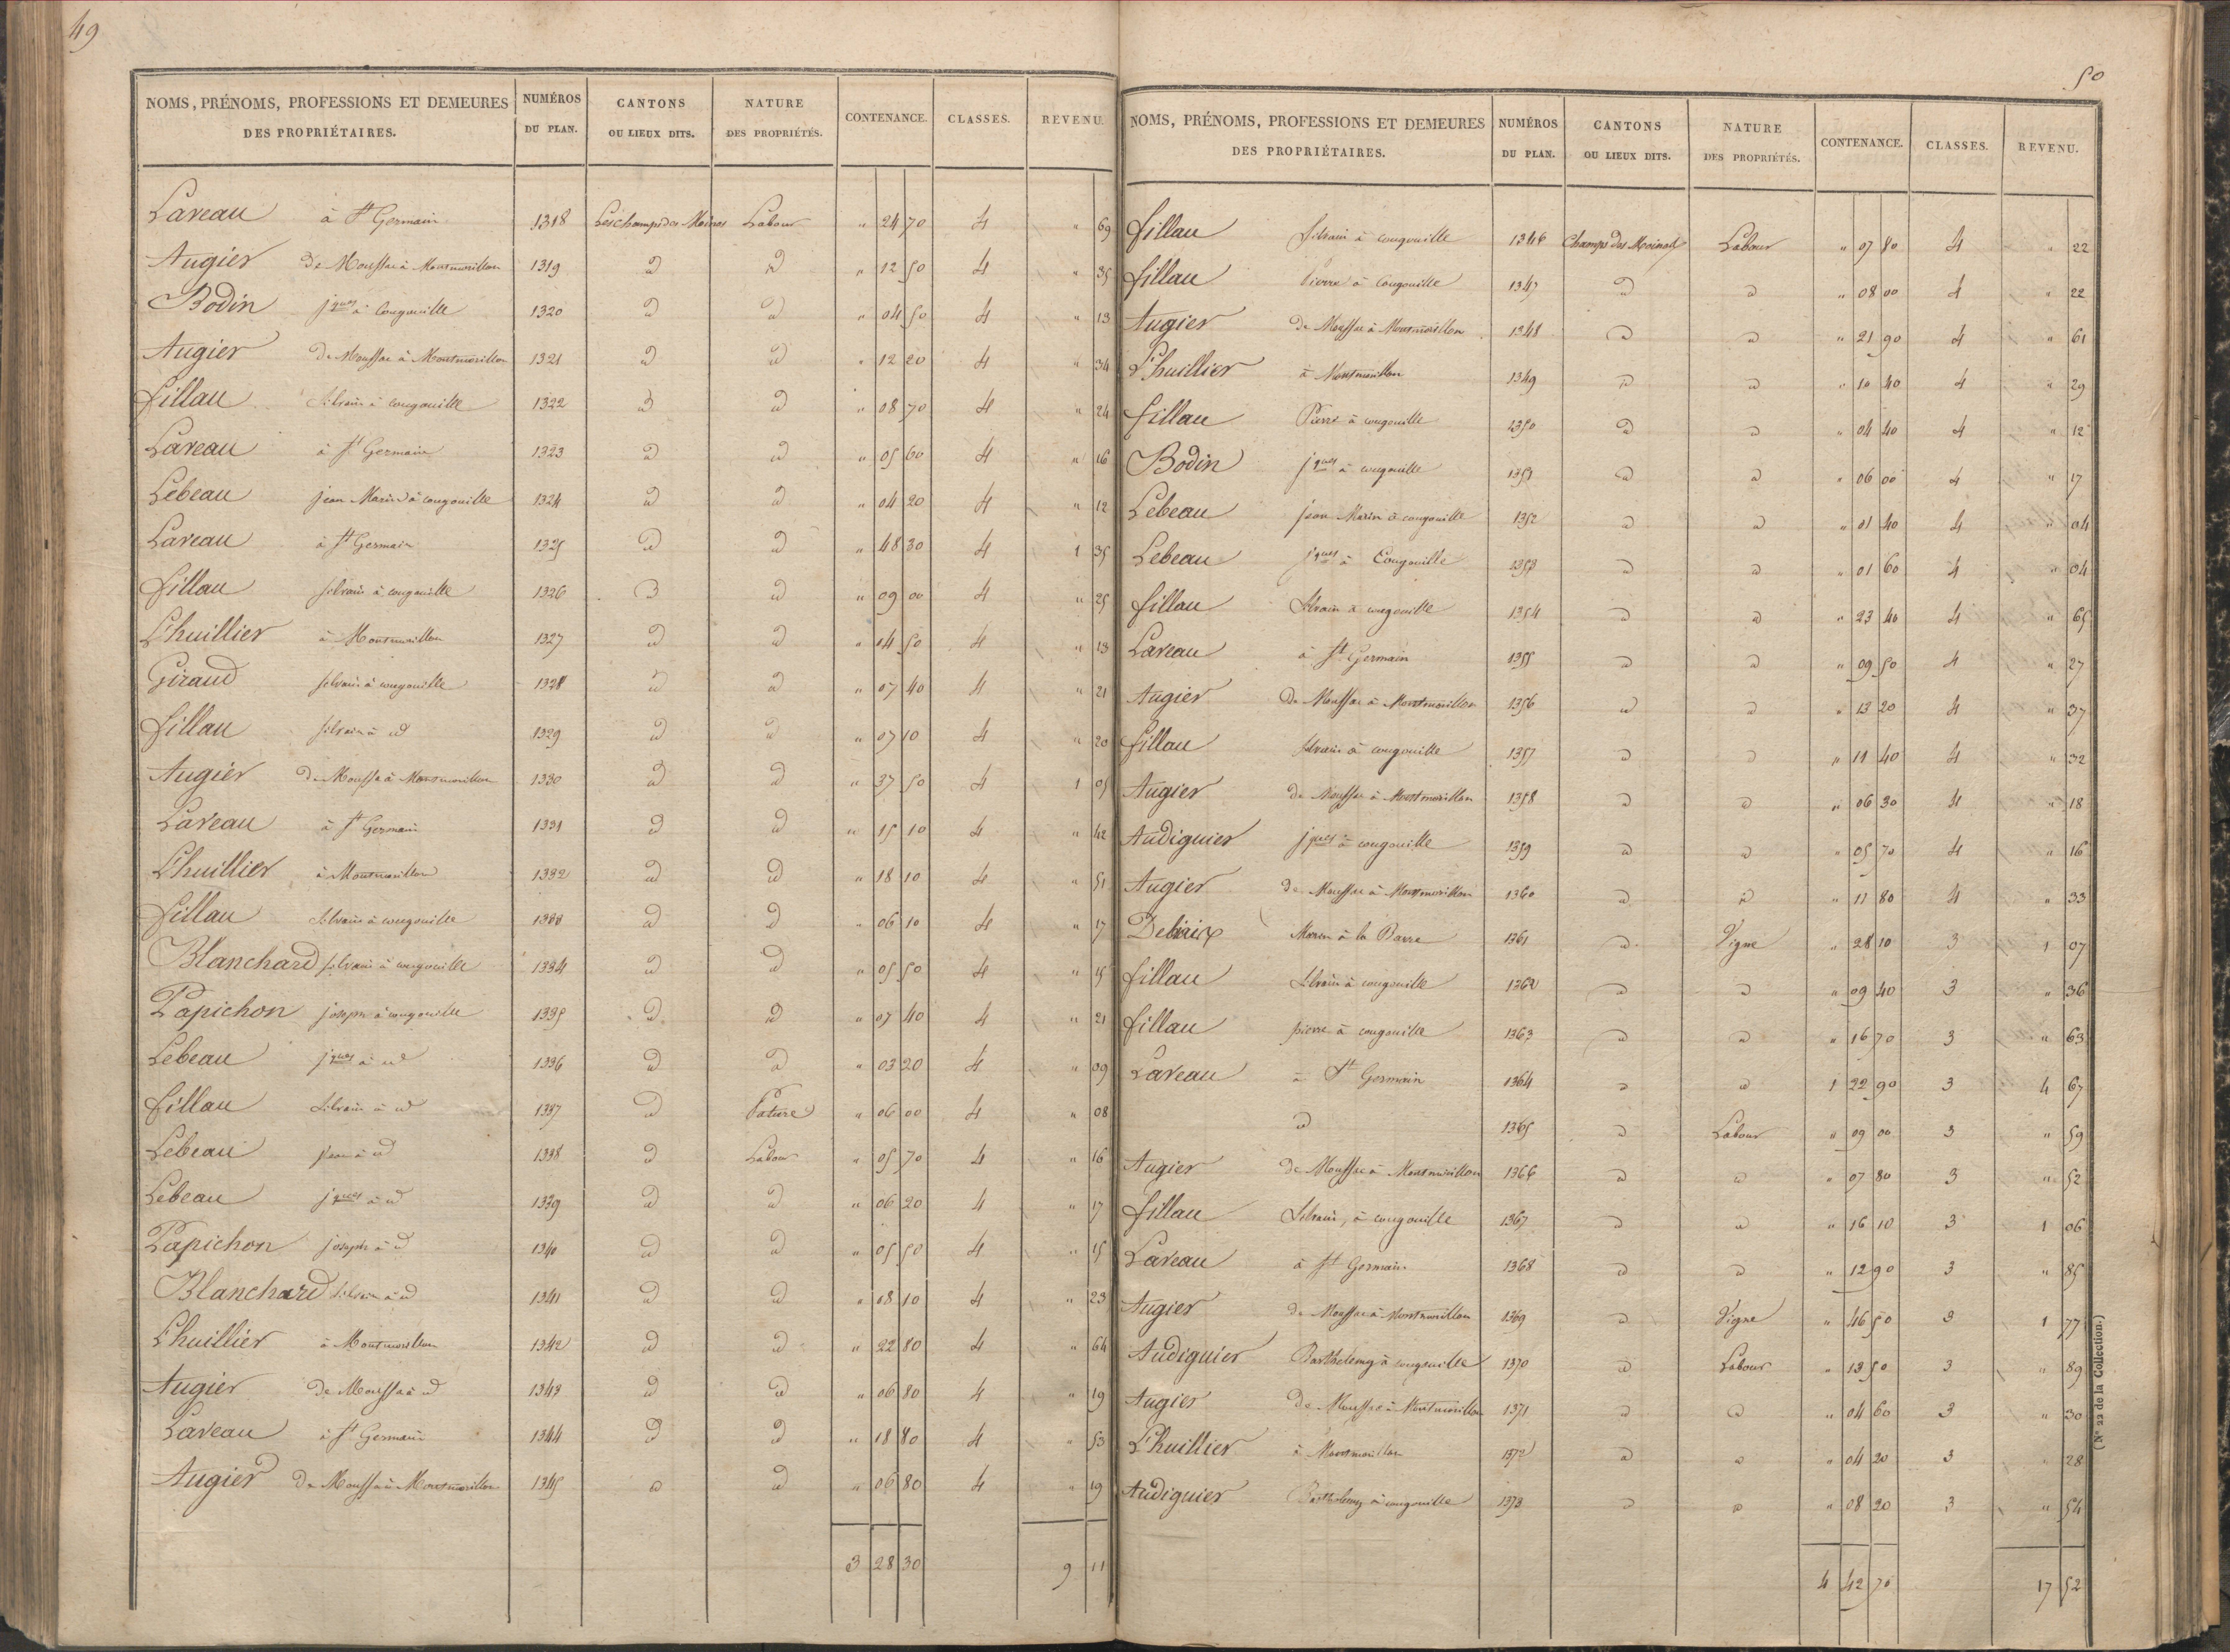 49
NOMS, PRÉNOMS, PROFESSIONS ET DEMEURES DES PROPRIÉTAIRES. NUMÉROS DU PLAN. CANTONS OU LIEUX DITS. NATURE DES PROPRIÉTÉS. CONTENANCE. CLASSES. REVENU.
Laveau à St Germain 1318 Les Champs des Moines Labour " 24 70 4 " 69
Augier De Moussac à Montmorillon 1319 d d " 12 50 4 " 35
Bodin jques à Cougouille 1320 d d " 04 50 4 " 13
Augier De Moussac à Montmorillon 1321 d d " 12 20 4 " 34
fillau Silvain à cougouille 1322 d d " 08 70 4 " 24
Laveau à St Germain 1323 d d " 05 60 4 " 16
Lebeau jean Marin à cougouille 1324 d d " 04 20 4 " 12
Laveau à St Germain 1325 d d " 48 30 4 1 35
fillau silvain à cougouille 1326 d d " 09 00 4 " 25
L'huillier à Montmorillon 1327 d d " 04 50 4 " 13
Giraud silvain à cougouille 1328 d d " 07 40 4 " 21
fillau silvain à d 1329 d d " 07 10 4 " 20
Augier De Moussac à Montmorillon 1330 d d " 37 50 4 1 05
Laveau à St Germain 1331 d d " 15 10 4 " 42
L'huillier à Montmorillon 1332 d d " 18 10 4 " 51
fillau Silvain à cougouille 1333 d d " 06 10 4 " 17
Blanchard silvain à cougouille 1334 d d " 05 50 4 " 15
Papichon joseph à cougouille 1335 d d " 07 40 4 " 21
Lebeau jques à d 1336 d d " 03 20 4 " 09
fillau Silvain à d 1337 d Pature " 06 00 4 " 08
Lebeau jean à d 1338 d Labour " 05 70 4 " 16
Lebeau jques à d 1339 d d " 06 20 4 " 17
Papichon joseph à d 1340 d d " 05 50 4 " 15
Blanchard silvain à d 1341 d d " 08 10 4 " 23
L'huillier à Montmorillon 1342 d d " 22 80 4 " 64
Augier De Moussac à d 1343 d d " 06 80 4 " 19
Laveau à St Germain 1344 d d " 18 80 4 " 53
Augier De Moussac à Montmorillon 1345 d d " 06 80 4 " 19
3 28 30 9 11
50
NOMS, PRÉNOMS, PROFESSIONS ET DEMEURES DES PROPRIÉTAIRES. NUMÉROS DU PLAN. CANTONS OU LIEUX DITS. NATURE DES PROPRIÉTÉS. CONTENANCE. CLASSES. REVENU.
fillau silvain à cougouille 1346 Champs des Moines Labour " 07 80 4 " 22
fillau Pierre à Cougouille 1347 d d " 08 00 4 " 22
Augier de Moussac à Montmorillon 1348 d d " 21 90 4 " 61
L'huillier à Montmorillon 1349 d d " 10 40 4 " 29
fillau Pierre à cougouille 1350 d d " 04 40 4 " 12
Bodin jques à cougouille 1351 d d " 06 00 4 " 17
Lebeau jean Marin à cougouille 1352 d d " 01 40 4 " 04
Lebeau jques à Cougouille 1353 d d " 01 60 4 " 04
fillau Silvain à cougouille 1354 d d " 23 40 4 " 65
Laveau à St Germain 1355 d d " 09 50 4 " 27
Augier De Moussac à Montmorillon 1356 d d " 13 20 4 " 37
fillau silvain à cougouille 1357 d d " 11 40 4 " 32
Augier de Moussac à Montmorillon 1358 d d " 06 30 4 " 18
Audiguier jques à cougouille 1359 d d " 05 70 4 " 16
Augier De Moussac à Montmorillon 1360 d d " 11 80 4 " 33
à la Barre 1361 d Vigne " 28 10 3 1 07
fillau Silvain à cougouille 1362 d d " 09 40 3 " 36
fillau pierre à cougouille 1363 d d " 16 70 3 " 63
Laveau à St Germain 1364 d d 1 22 90 3 4 67
d 1365 d Labour " 09 00 3 " 59
Augier De Moussac à Montmorillon 1366 d d " 07 80 3 " 52
fillau Silvain, à cougouille 1367 d d " 16 10 3 1 06
Laveau à St Germain 1368 d d " 12 90 3 " 85
Augier de Moussac à Montmorillon 1369 d Vigne " 46 50 3 1 77
Audiguier Barthelemy à cougouille 1370 d Labour " 13 50 3 " 89
Augier De Moussac à Montmorillon 1371 d d " 04 60 3 " 30
L'huillier à Montmorillon 1372 d d " 04 20 3 " 28
Audiguier Barthelemy à cougouille 1373 d d " 08 20 3 " 54
4 42 70 17 52
(N° 22 de la Collection.)